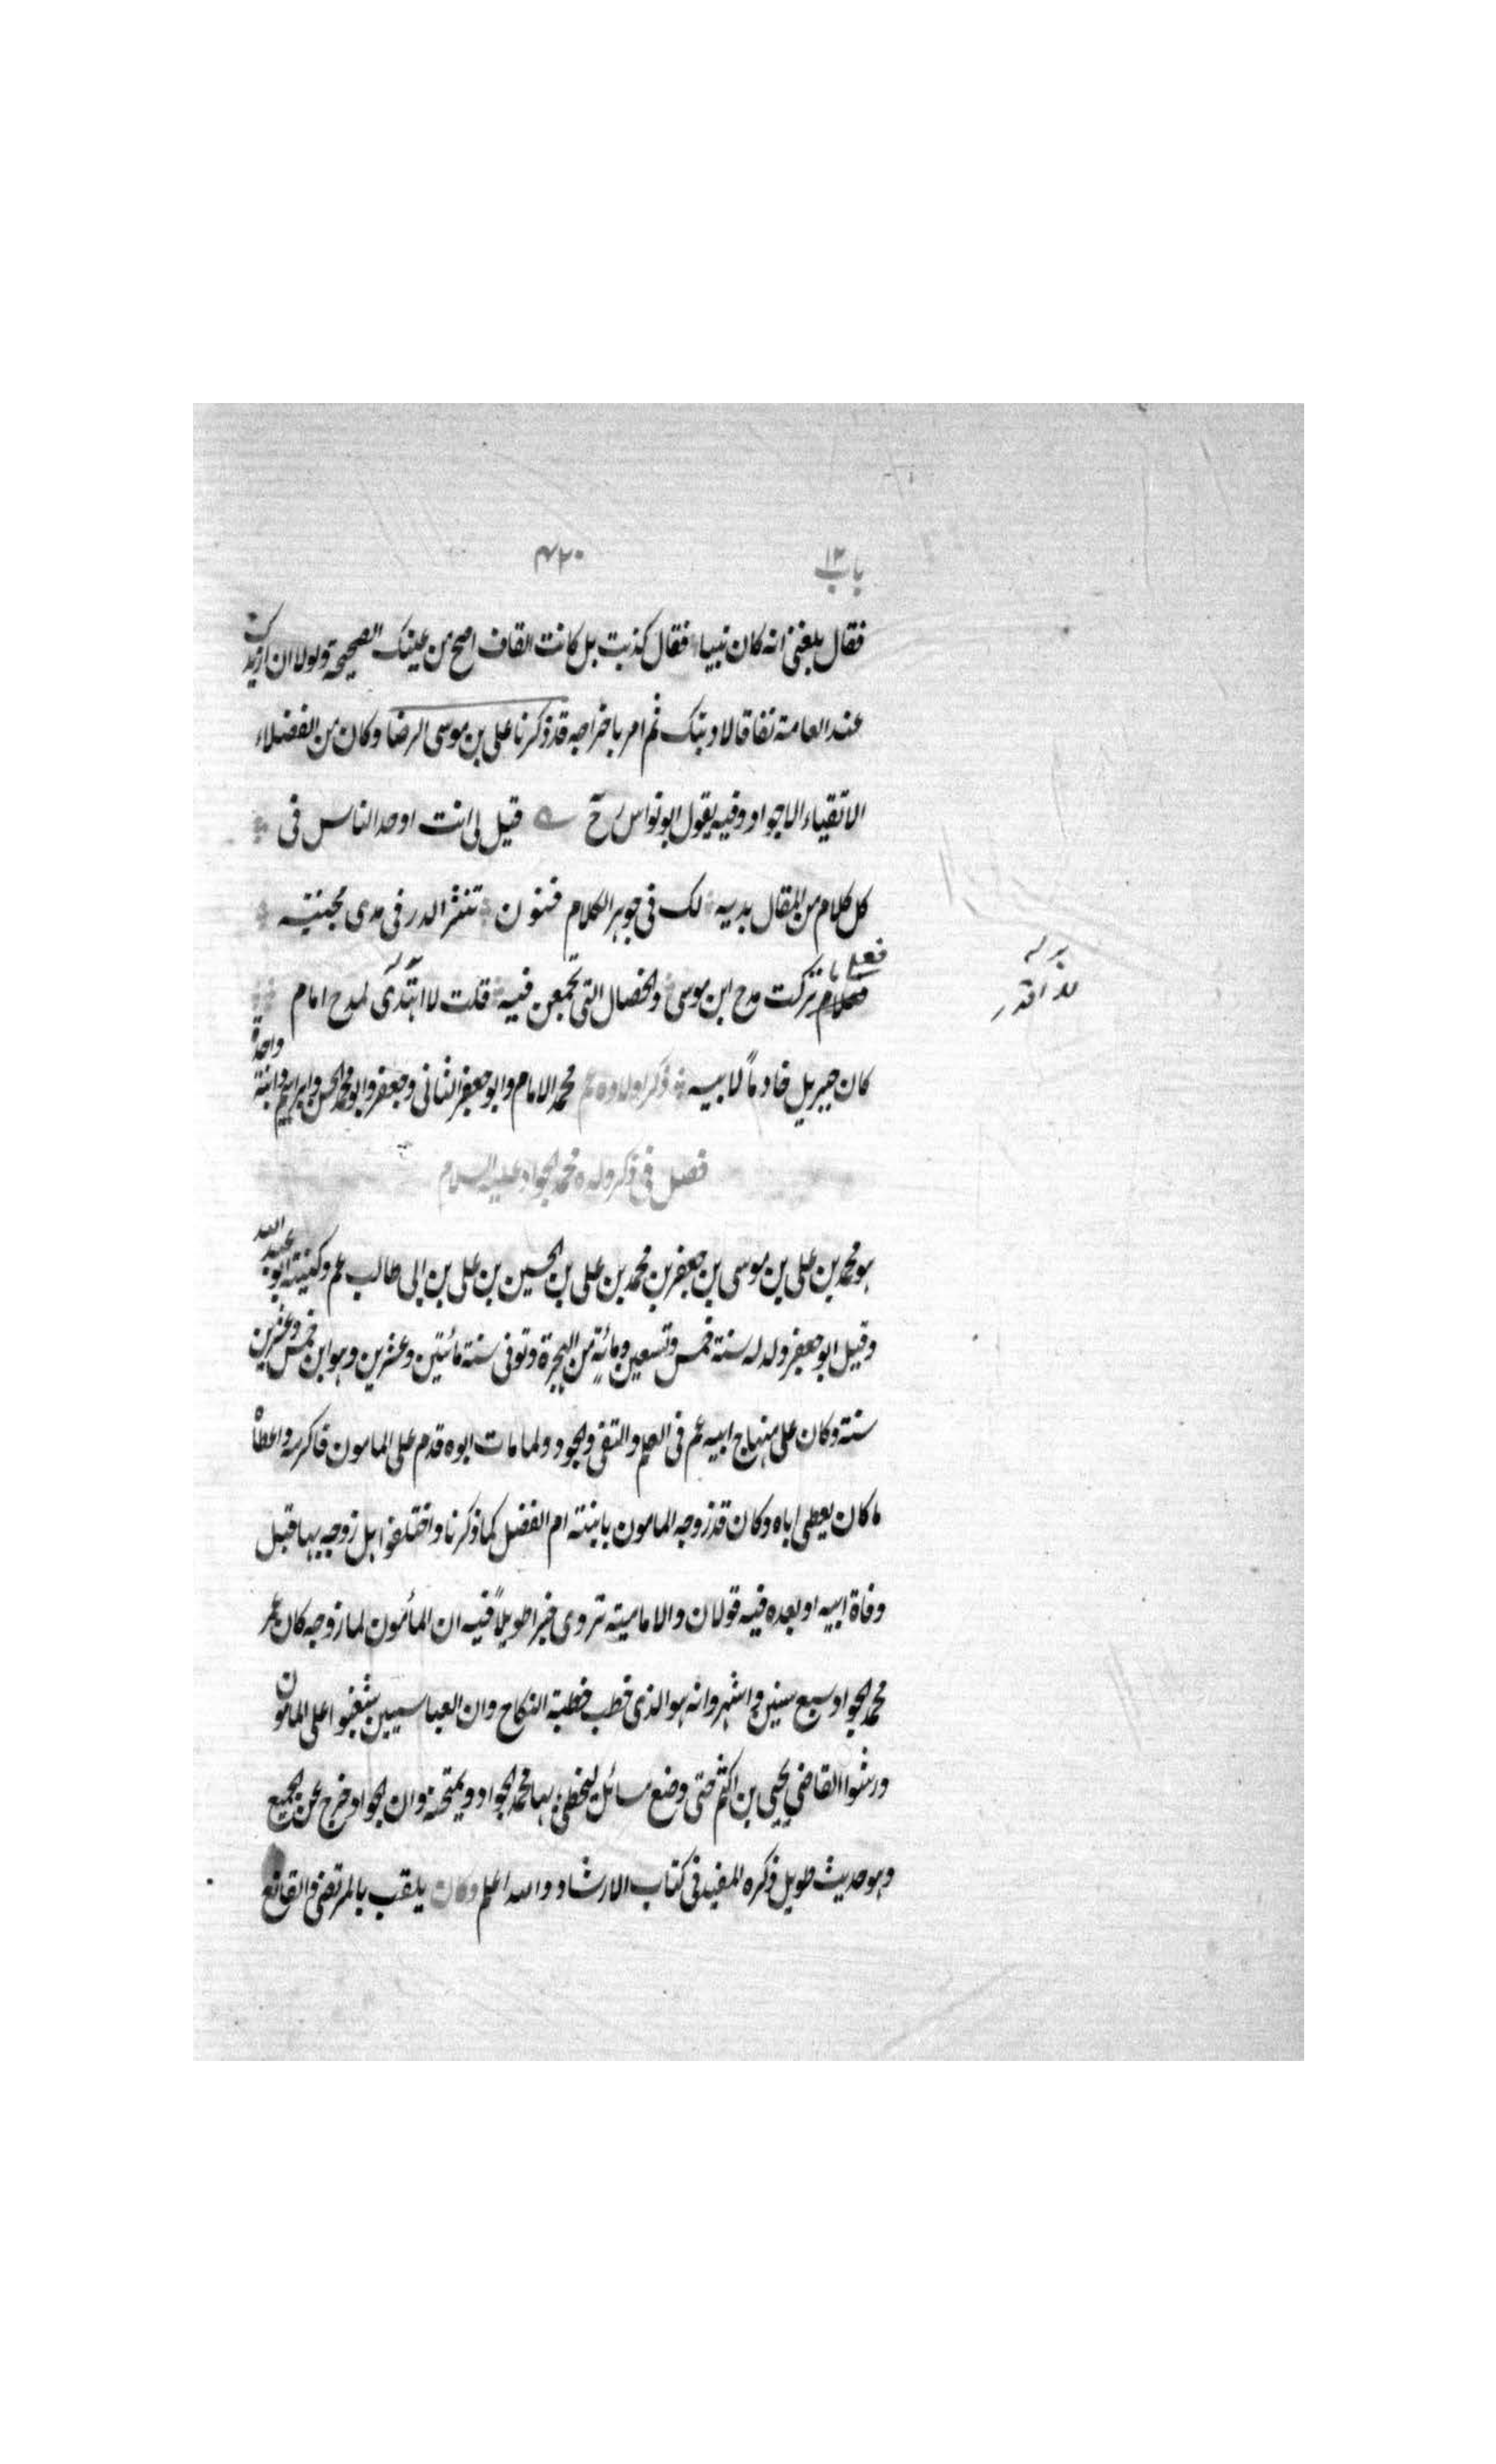 باب ١٢
٤٢٠
فقال بلغنى انه كان نبيا فقال كذبت بل كانت القاف اصح من عينك الصحيحة ولولا ان ازيدك
عند العامة نفاقا لادبتك ثم امر باخراجه قد ذكرنا على بن موسى الرضا وكان من الفضلاء
الاتقياء الاجواد وفيه يقول ابو نواس رح قيل لى انت اوحد الناس فى
كل كلام من المقال بديه لك فى جوهر الكلام فنون تنثر الدر فى يدى مجتنيه
فعلى ما
فعلام تركت مدح ابن موسى والخصال التى تجمعن فيه قلت لا اهتدى لمدح امام
كان جبريل خادماً لابيه ذكر اولاده عم محمد الامام وابو جعفر الثانى وجعفر وابو محمد الحسن وابراهيم وابنة واحدة
فصل فى ذكر ولده محمد الجواد عليه السلام
هو محمد بن على بن موسى بن جعفر بن محمد بن على بن الحسين بن على بن ابى طالب عم وكنيته ابو عبد الله
وقيل ابو جعفر ولد له سنة خمس وتسعين ومائةٍ من الهجرة وتوفى سنة مائتين وعشرين وهو ابن خمس وعشرين
سنة وكان على منهاج ابيه عم فى العلم والتقى والجود ولما مات ابوه قدم على المامون فاكرمه واعطاه
ما كان يعطى اباه وكان قد زوجه المامون بابنته ام الفضل كما ذكرنا واختلفوا هل زوجه بها قبل
وفاة ابيه او بعده فيه قولان والامامية تروى خبرا طويلاً فيه ان المأمون لما زوجه كان عمر
محمد الجواد سبع سنين واشهر وانه هو الذى خطب خطبة النكاح وان العباسيين شغبوا على المامون
ورشوا القاضي يحيى بن اكثم حتى وضع مسائل ليخطئ بها محمد الجواد ويمتحنه وان الجواد خرج عن الجميع
وهو حديث طويل ذكره المفيد فى كتاب الارشاد والله اعلم وكان يلقب بالمرتضى والقانع